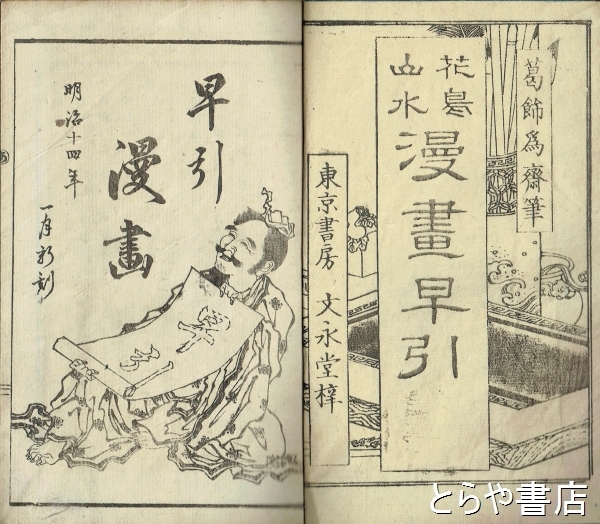 葛飾爲齋筆
花鳥
山水
漫畫早引
東京書房 文永堂梓
早引
漫畫
明治十四年
一月新刻
とらや書店